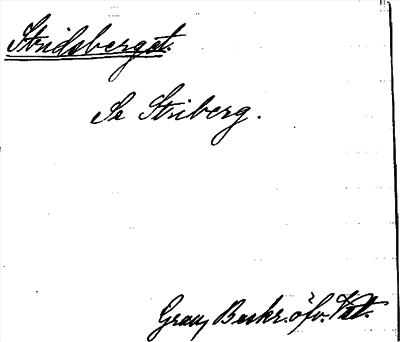 Stridsberget.
Se Striberg.
Grau, Beskr. öfv. Vst.